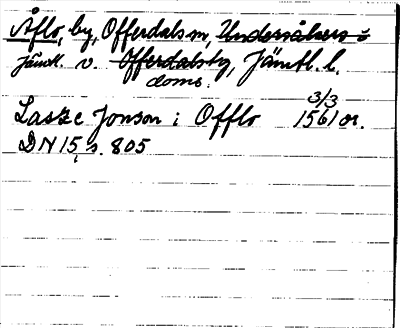 Åflo, by, Offerdals sn, Undersåkers
Jämtl. v. Offerdals tg, Jämtl. l.
doms.
3/3
Lasse Jonson i Offlo 1561 or.
DN 15, s. 805